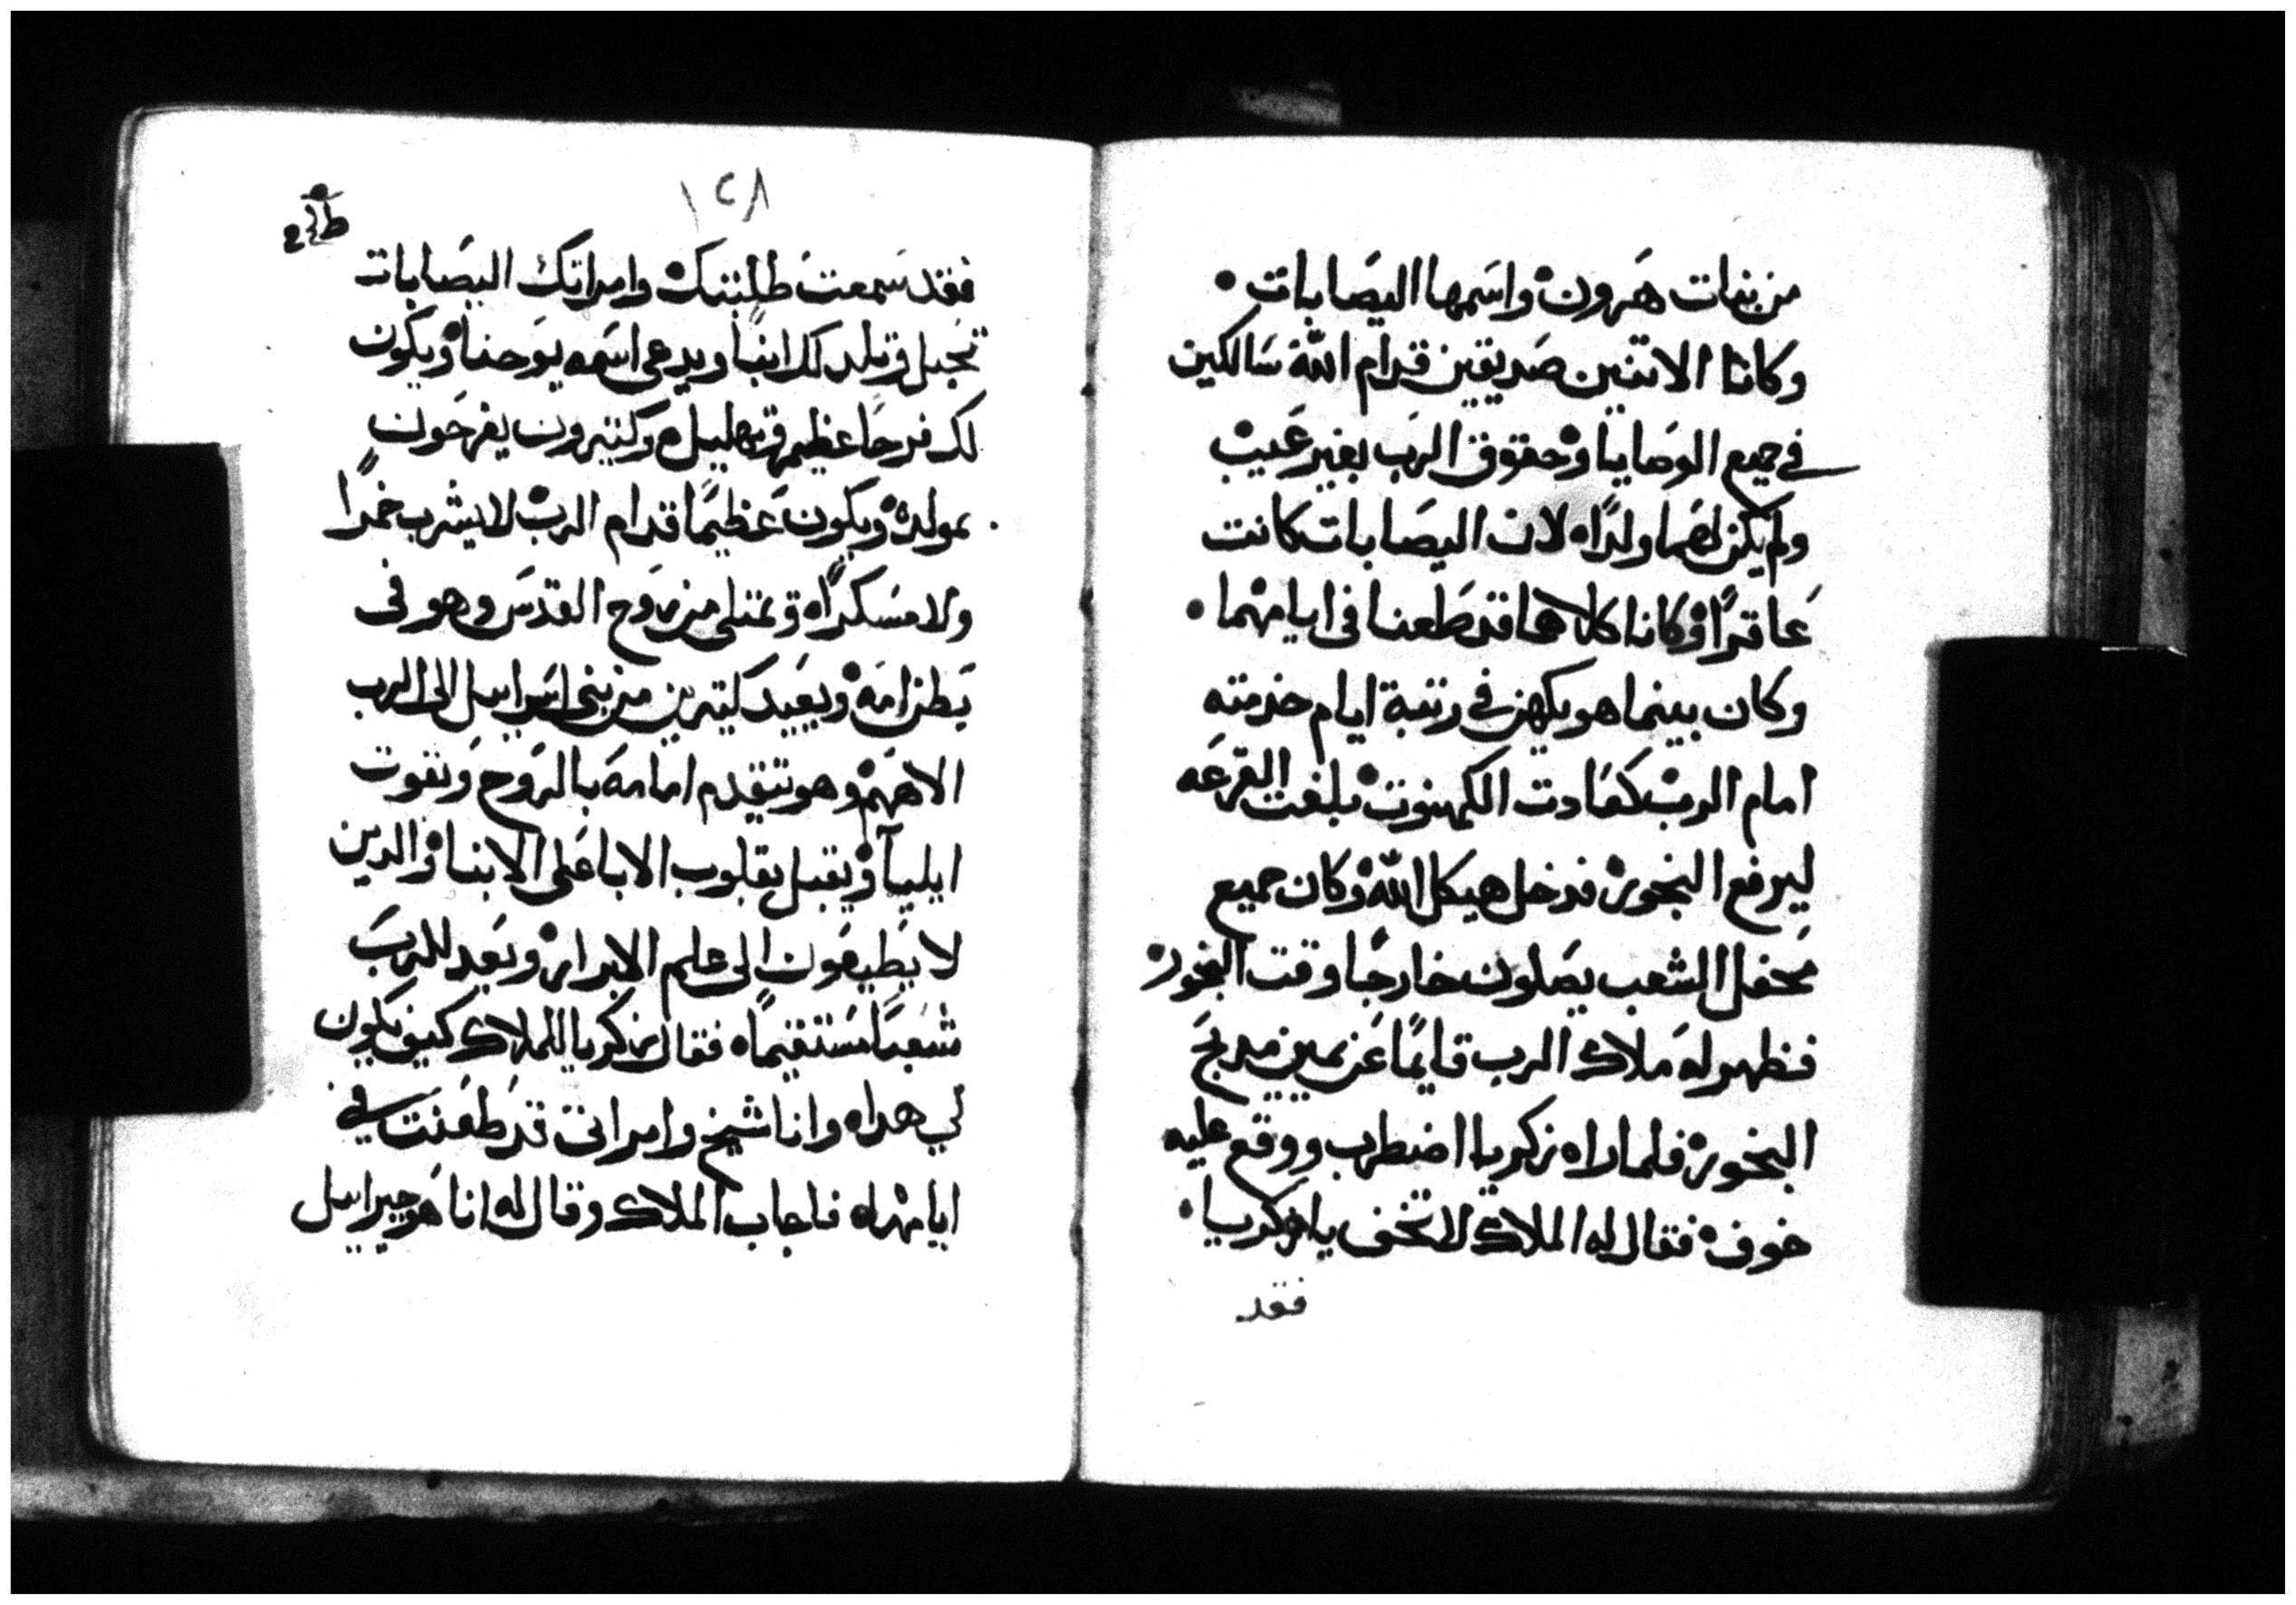 من بنات هرون واسمها اليصابات •
وكانا الاتنين صديقين قدام الله سالكين
في جميع الوصايا وحقوق الرب بغير عيب
ولم يكن لهما ولدًا لان اليصابات كانت
عاقرًا وكانا كلاهما قد طعنا في ايامهما •
وكان بينما هو يكهن في رتبة ايام خدمته
امام الرب كعادت الكهنوت بلغت القرعه
ليرفع البخور فدخل هيكل الله وكان جميع
محفل الشعب يصلون خارجًا وقت البخور
فظهر له ملاك الرب قايمًا عن يمين مدبح
البخور فلما راه زكريا اضطرب ووقع عليه
خوف فقال له الملاك لا تخف يا زكريا •
فقد
١٢٨
فقد سمعت طلبتك وامراتك اليصابات
تحبل وتلد لك ابنًا ويدعى اسمه يوحنا ويكون
لك فرحا عظيم وتهليل وكتيرون يفرحون
بمولده ويكون عظيمًا قدام الرب لا يشرب خمرًا
ولا مسكرًا ويمتلى من روح القدس وهو فى
بطن امه ويعيد كتيرين من بني اسراييل الى الرب
الاههم وهو يتقدم امامه بالروح وبقوت
ايليا ويقبل بقلوب الابا على الابنا والدين
لا يطيعون الى علم الابرار ويعد للرب
شعبًا مستقيمًا فقال زكريا للملاك كيف يكون
لي هدا وانا شيخ وامراتى قد طعنت في
ايامها فاجاب الملاك وقال له انا هو جبراييل